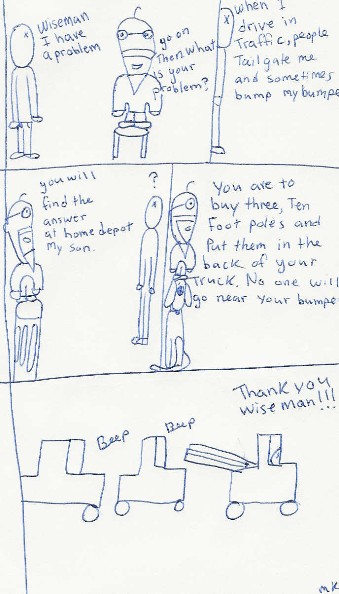 Wiseman
I have
a problem
go on
Then what
is your
problem?
when I
drive in
Traffic, people
Tailgate me
and sometimes
bump my bumpe
you will
find the
answer
at home depot
My son.
?
You are to
buy three, Ten
Foot poles and
Put them in the
back of your
Truck. No one will
go near your bumpe
Thank you
wise man!!!
Beep
Beep
MK